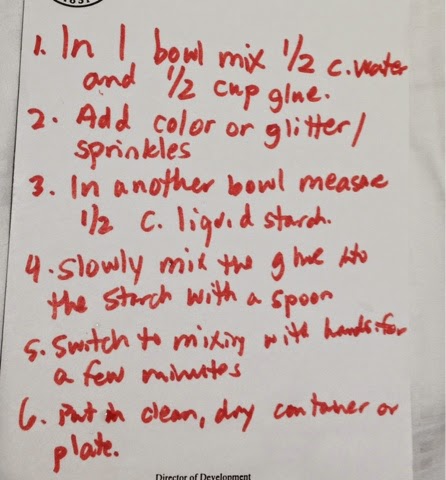 1. In 1 bowl mix 1/2 c. water
and 1/2 cup glue.
2. Add color or glitter/
sprinkles
3. In another bowl measure
1/2 c. liquid starch.
4. Slowly mix the glue into
the starch with a spoon
5. Switch to mixing with hands for
a few minutes
6. Put in clean, dry container or
plate.
Director of Development